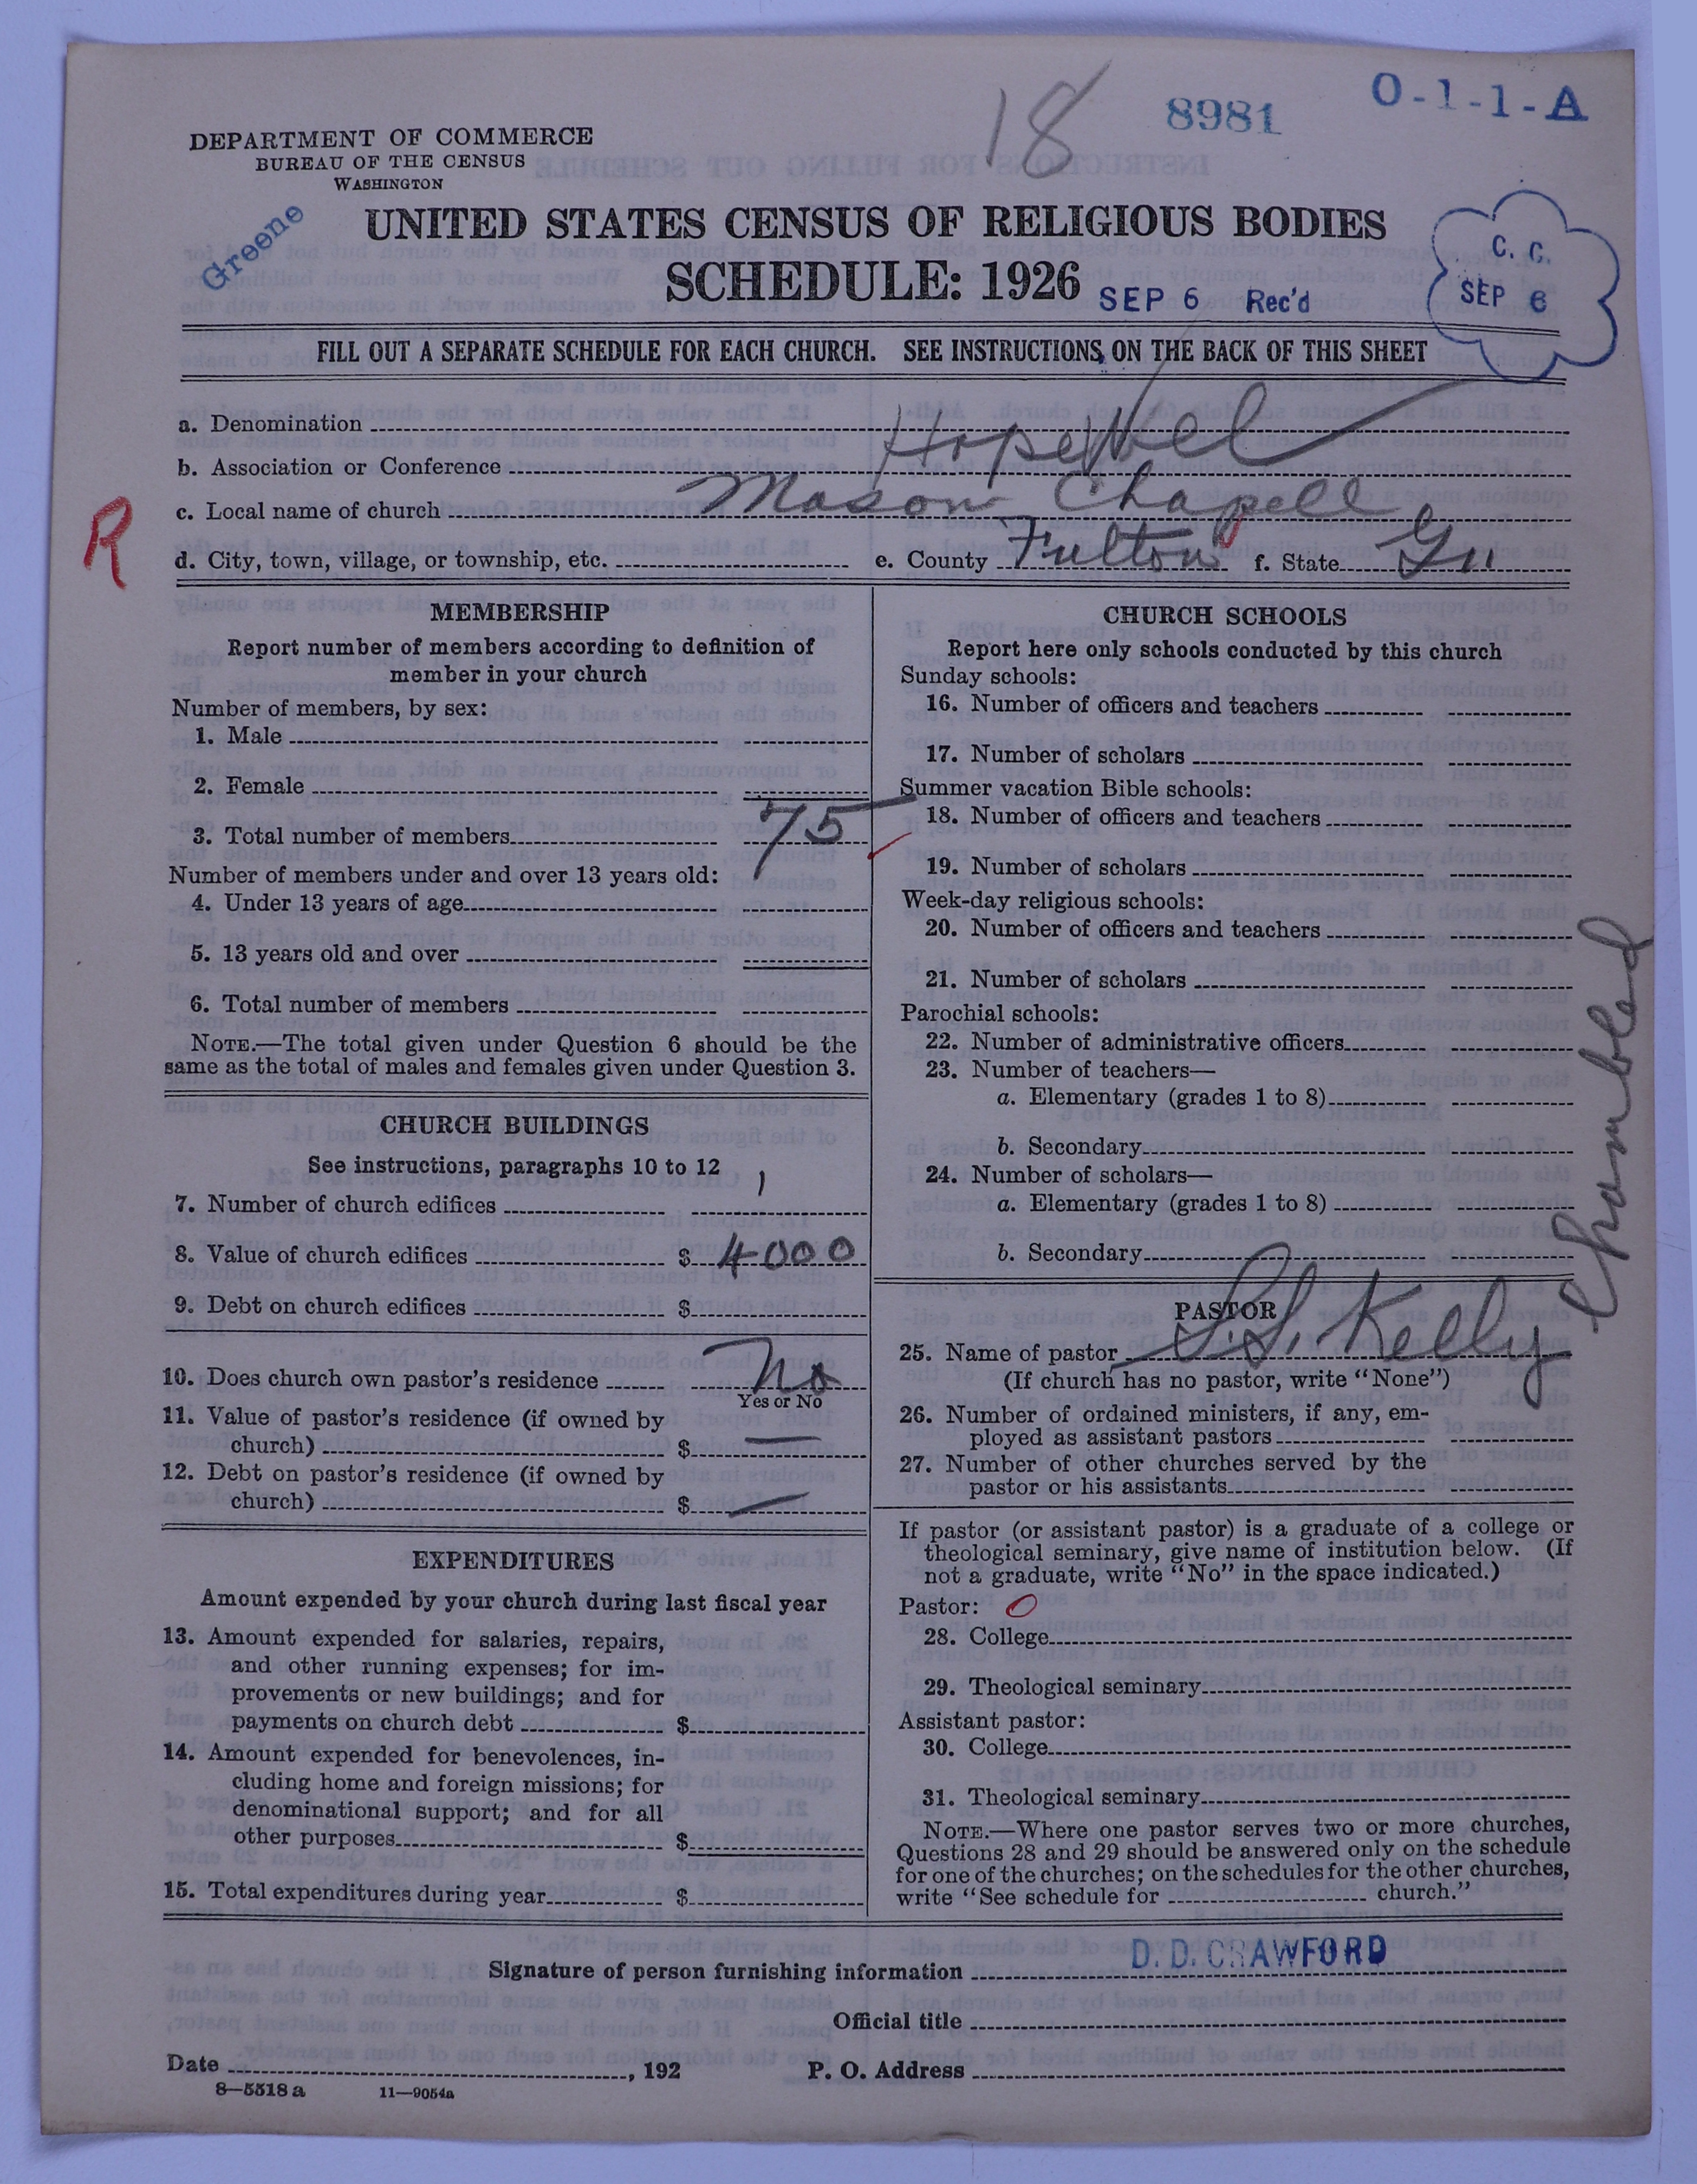 18
8981
O-1-1-A
DEPARTMENT OF COMMERCE
BUREAU OF THE CENSUS
WASHINGTON
Greene
UNITED STATES CENSUS OF RELIGIOUS BODIES
SCHEDULE: 1926
SEP 6 Rec'd
C. C.
SEP 6
FILL OUT A SEPARATE SCHEDULE FOR EACH CHURCH. SEE INSTRUCTIONS ON THE BACK OF THIS SHEET
a. Denomination
b. Association or Conference Hopewel
c. Local name of church Mason Chapell
R
d. City, town, village, or township, etc. e. County Fulton f. State Ga
MEMBERSHIP
Report number of members according to definition of
member in your church
Number of members, by sex:
1. Male
2. Female
3. Total number of members 75
Number of members under and over 13 years old:
4. Under 13 years of age
5. 13 years old and over
6. Total number of members
NOTE.—The total given under Question 6 should be the
same as the total of males and females given under Question 3.
CHURCH BUILDINGS
See instructions, paragraphs 10 to 12
7. Number of church edifices 1
8. Value of church edifices $ 4000
9. Debt on church edifices $
10. Does church own pastor's residence No
Yes or No
11. Value of pastor's residence (if owned by
church) $ —
12. Debt on pastor's residence (if owned by
church) $ —
EXPENDITURES
Amount expended by your church during last fiscal year
13. Amount expended for salaries, repairs,
and other running expenses; for im-
provements or new buildings; and for
payments on church debt $
14. Amount expended for benevolences, in-
cluding home and foreign missions; for
denominational support; and for all
other purposes $
15. Total expenditures during year $
CHURCH SCHOOLS
Report here only schools conducted by this church
Sunday schools:
16. Number of officers and teachers
17. Number of scholars
Summer vacation Bible schools:
18. Number of officers and teachers
19. Number of scholars
Week-day religious schools:
20. Number of officers and teachers
21. Number of scholars
Parochial schools:
22. Number of administrative officers
23. Number of teachers—
a. Elementary (grades 1 to 8)
b. Secondary
24. Number of scholars—
a. Elementary (grades 1 to 8)
b. Secondary
PASTOR
25. Name of pastor S. S. Kelly
(If church has no pastor, write "None")
26. Number of ordained ministers, if any, em-
ployed as assistant pastors
27. Number of other churches served by the
pastor or his assistants
If pastor (or assistant pastor) is a graduate of a college or
theological seminary, give name of institution below. (If
not a graduate, write "No" in the space indicated.)
Pastor: O
28. College
29. Theological seminary
Assistant pastor:
30. College
31. Theological seminary
NOTE.—Where one pastor serves two or more churches,
Questions 28 and 29 should be answered only on the schedule
for one of the churches; on the schedules for the other churches,
write "See schedule for church."
Signature of person furnishing information D. D. CRAWFORD
Official title
Date , 192 P. O. Address
8—5518a 11—9054a